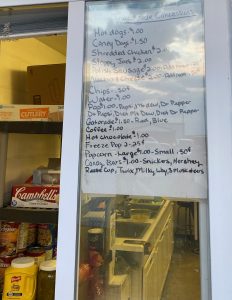 Concessions
Hot dogs $1.00
Coney Dogs $1.50
Shredded Chicken $2.
Sloppy Joes $2.00
Polish Sausage $2.00
Chips - .50¢
Water $1.00
Pop $1.00 - Pepsi, Mt. Dew, Dr. Pepper
Dt. Pepsi, Diet Mt. Dew, Diet Dr. Pepper
Gatorade $1.50 - Red, Blue
Coffee $1.00
Hot chocolate $1.00
Freeze Pop 2 - 25¢
Popcorn - Large $1.00 - Small .50¢
Candy Bars $1.00 - Snickers, Hershey,
Reese Cup, Twix, Milky Way, 3 Musketeers
CUTLERY
Campbell's